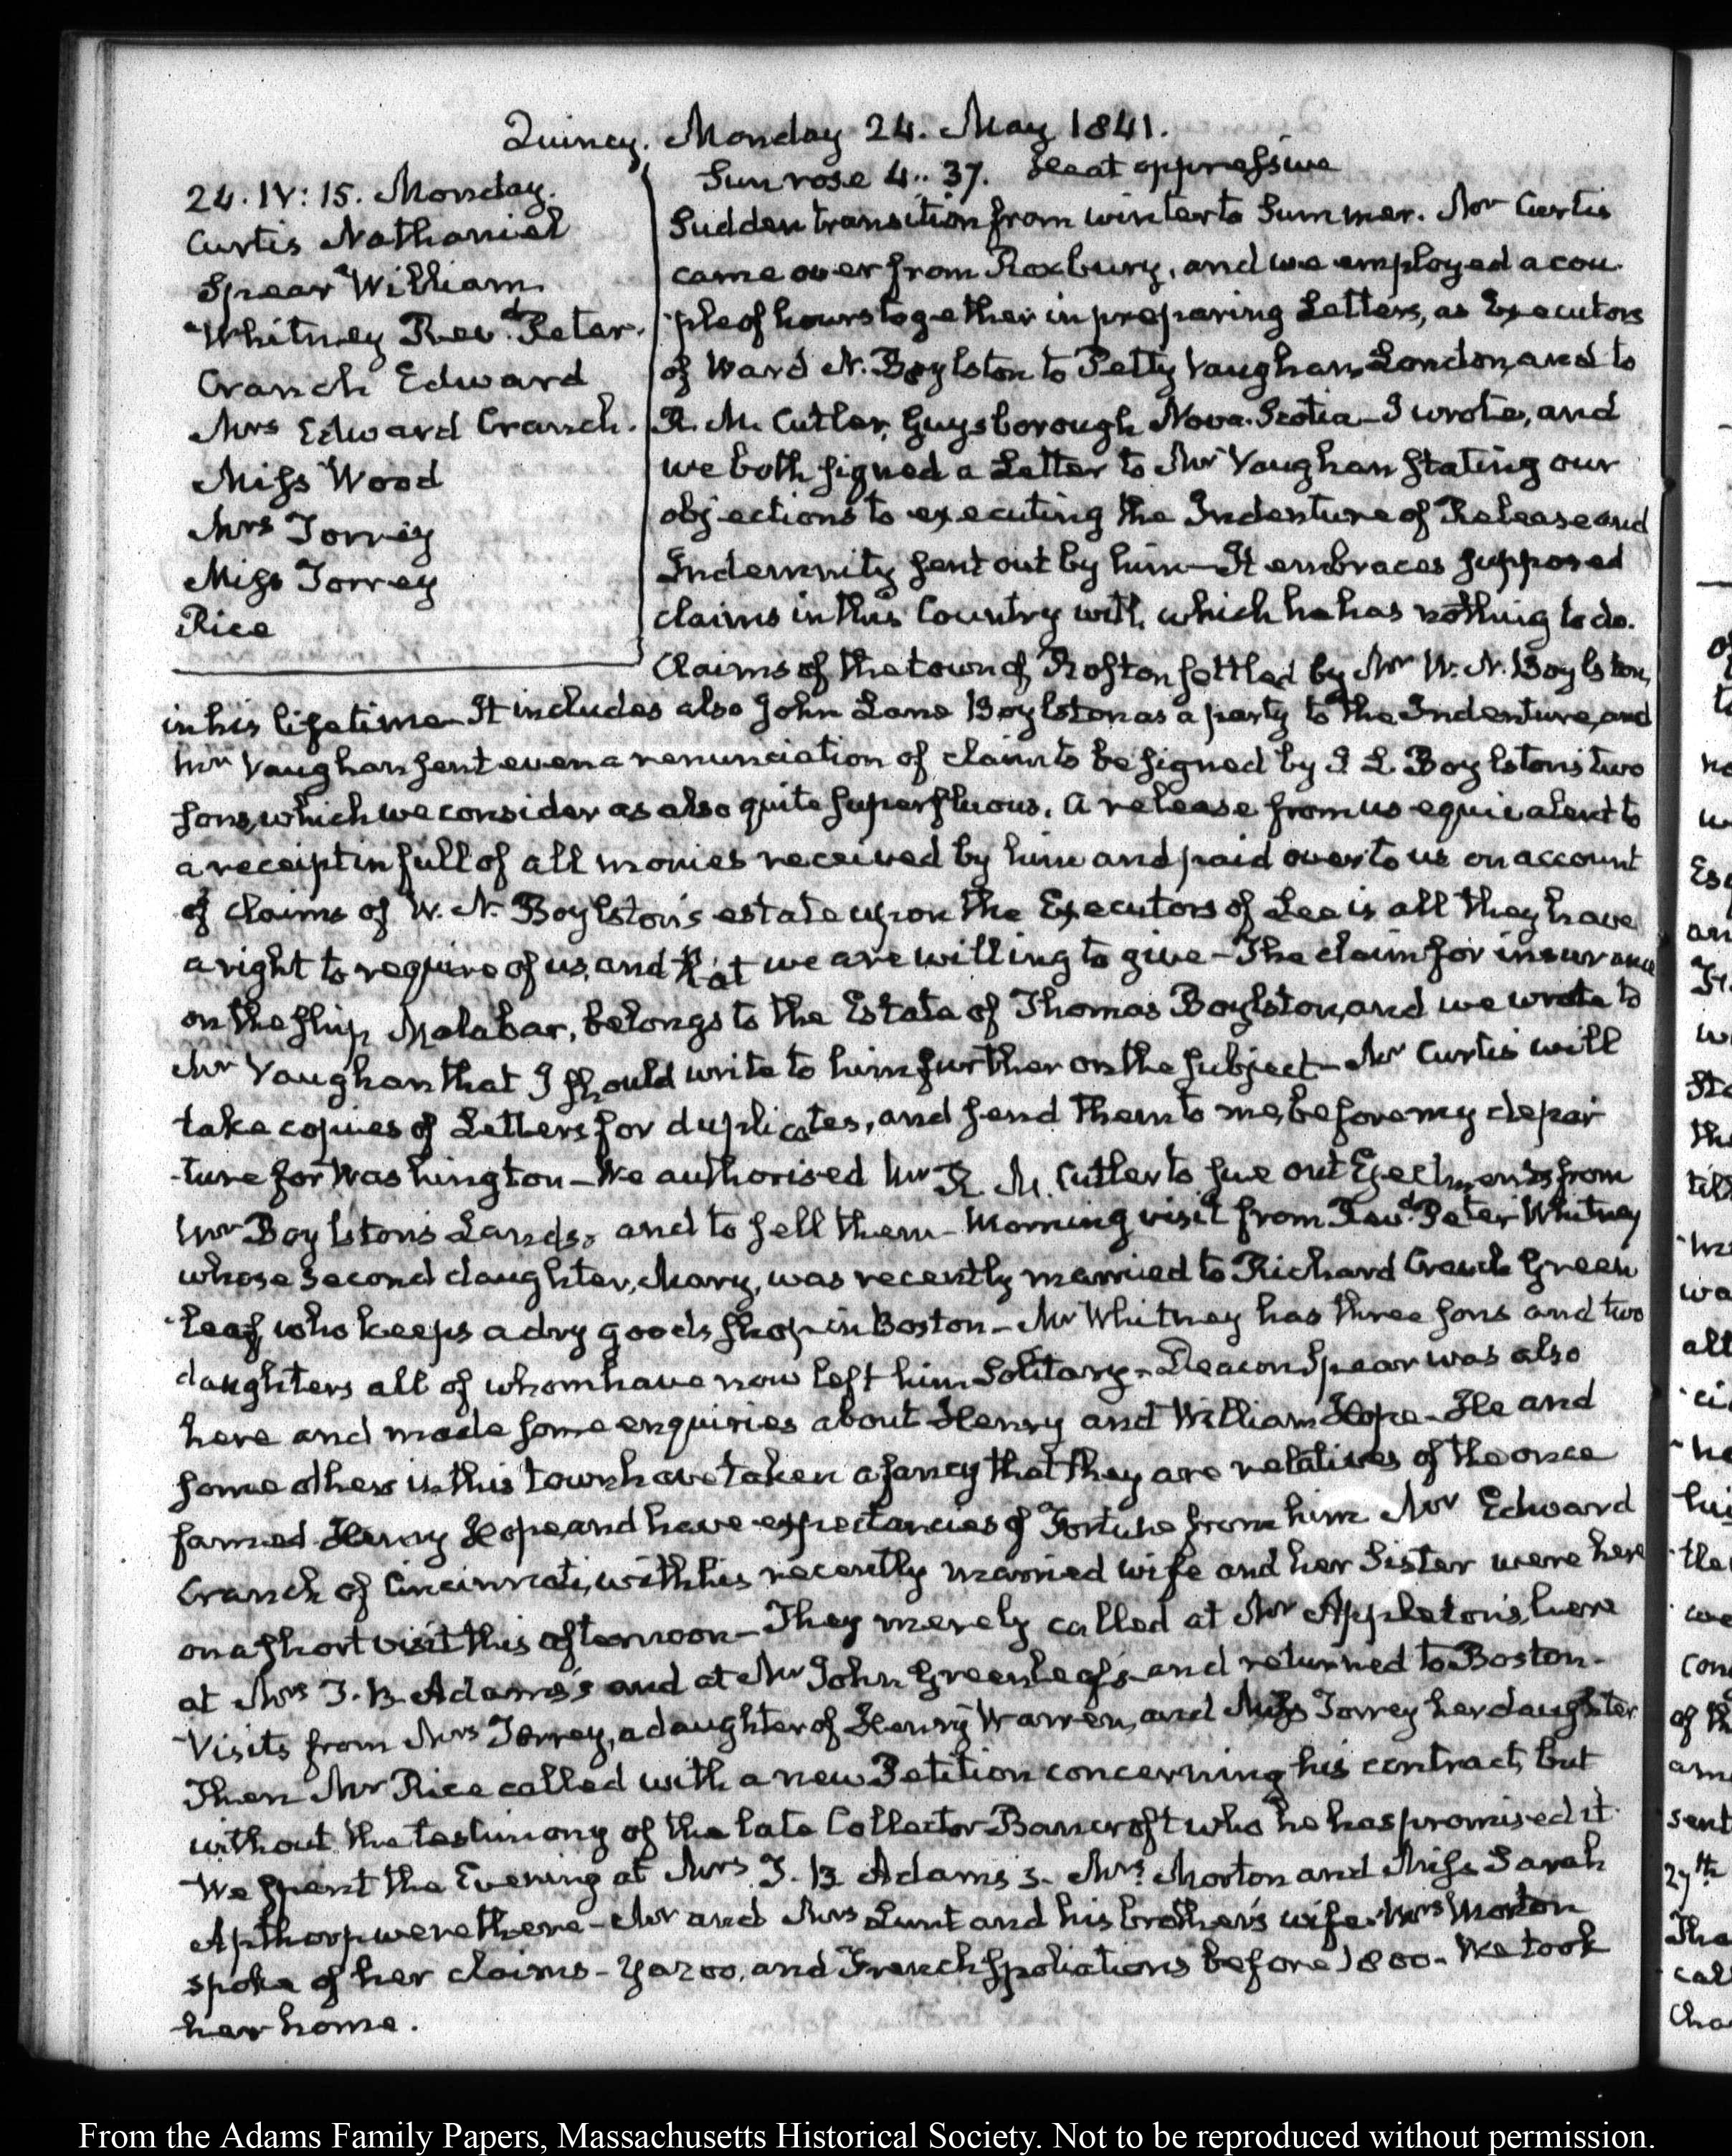 Quincy. Monday 24. May 1841.
24. IV: 15. Monday.
Curtis Nathaniel
Spear William
Whitney Revd. Peter.
Cranch Edward
Mrs Edward Cranch.
Miss Wood
Mrs Torrey
Miss Torrey
Rice
Sun rose 4.. 37. Heat oppressive
Sudden transition from winter to Summer. Mr Curtis
came over from Roxbury, and we employed a cou-
ple of hours together in preparing Letters, as Executors
of Ward N. Boylston to Petty Vaughan, London, and to
R. M. Cutler, Guysborough Nova-Scotia—I wrote, and
we both signed a Letter to Mr Vaughan stating our
objections to executing the Indenture of Release and
Indemnity sent out by him—It embraces supposed
claims in this Country with which he has nothing to do.
Claims of the town of settled by Mr W. N. Boylston,
in his lifetime—It includes also John Lane Boylston as a party to the Indenture, and
Mr Vaughan sent even a renunciation of claim to be signed by J L Boylston's two
sons, which we consider as also quite superfluous. A release from us equivalent to
a receipt in full of all monies received by him and paid over to us on account
of claims of W. N. Boylston's estate upon the Executors of Lee is all they have
a right to require of us, and that we are willing to give—The claim for insurance
on the ship Malabar, belongs to the Estate of Thomas Boylston, and we wrote to
Mr Vaughan that I should write to him further on the subject—Mr Curtis will
take copies of Letters for duplicates, and send them to me, before my depar
-ture for Washington—We authorised Mr R. M. Cutler to sue out Ejectments from
Mr Boylston's Lands, and to sell them—Morning visit from Revd. Peter Whitney
whose second daughter, Mary, was recently married to Richard Cranch Green
-leaf, who keeps a dry goods shop in Boston—Mr Whitney has three sons and two
daughters all of whom have now left him Solitary—Deacon Spear was also
here and made some enquiries about Henry and William Hope—He and
some others in this town have taken a fancy that they are relatives of the once
famed Henry Hope, and have expectancies of Fortune from him Mr Edward
Cranch of Cincinnati, with his recently married wife and her Sister were here
on a short visit this afternoon—They merely called at Mr Appleton's, here
at Mrs T. B. Adams's and at Mr John Greenleaf's and returned to Boston—
Visits from Mrs Torrey, a daughter of Henry Warren, and Miss Torrey her daughter
Then Mr Rice called with a new Petition concerning his contract, but
without the testimony of the late Collector Bancroft who he has promised it
We spent the Evening at Mrs T. B Adams's. Mrs Morton and Miss Sarah
Apthorp were there—Mr and Mrs Lunt and his brother's wife. Mrs Morton
spoke of her claims—Yazoo, and French spoliations before 1800—We took
her home.
From the Adams Family Papers, Massachusetts Historical Society. Not to be reproduced without permission.